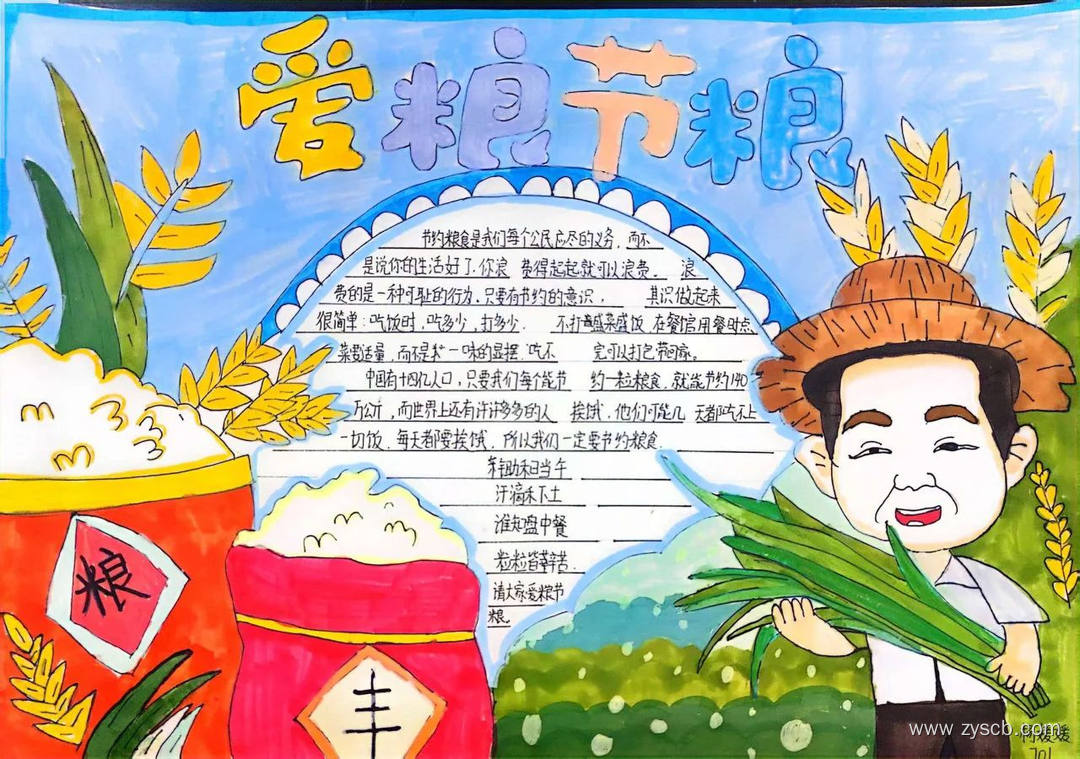 爱粮节粮
节约粮食是我们每个公民应尽的义务，而不
是说你的生活好了，你浪 费得起起就可以浪费。 浪
费的是一种可耻的行为，只要有节约的意识， 其识做起来
很简单：吃饭时，吃多少，打多少. 不打 盛菜盛饭 在餐馆用餐时点
菜要适量，而不是 一味的显摆. 吃不 完可以打包带回家。
中国有十四亿人口，只要我们每个能节 约一粒粮食，就能节约140
万公斤，而世界上还有许许多多的人 挨饿，他们可能几 天都吃不上
一切饭. 每天都要挨饿，所以我们一定要节约粮食.
禾日当午
汗滴禾下土
谁知盘中餐
粒粒皆辛苦.
请大家爱粮节
粮。
粮
丰
www.zyscb.com
媛媛
701